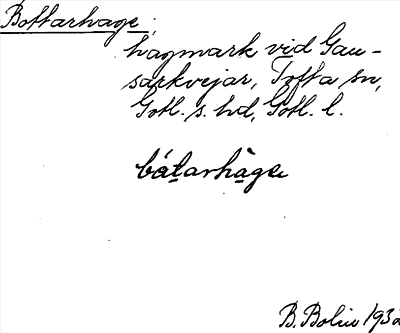 Bottarhage;
hagmark vid Gau-
sarkvejar, Tofta sn,
Gotl. s. hd, Gotl. l.
bátarhàge
B. Bolin 1932